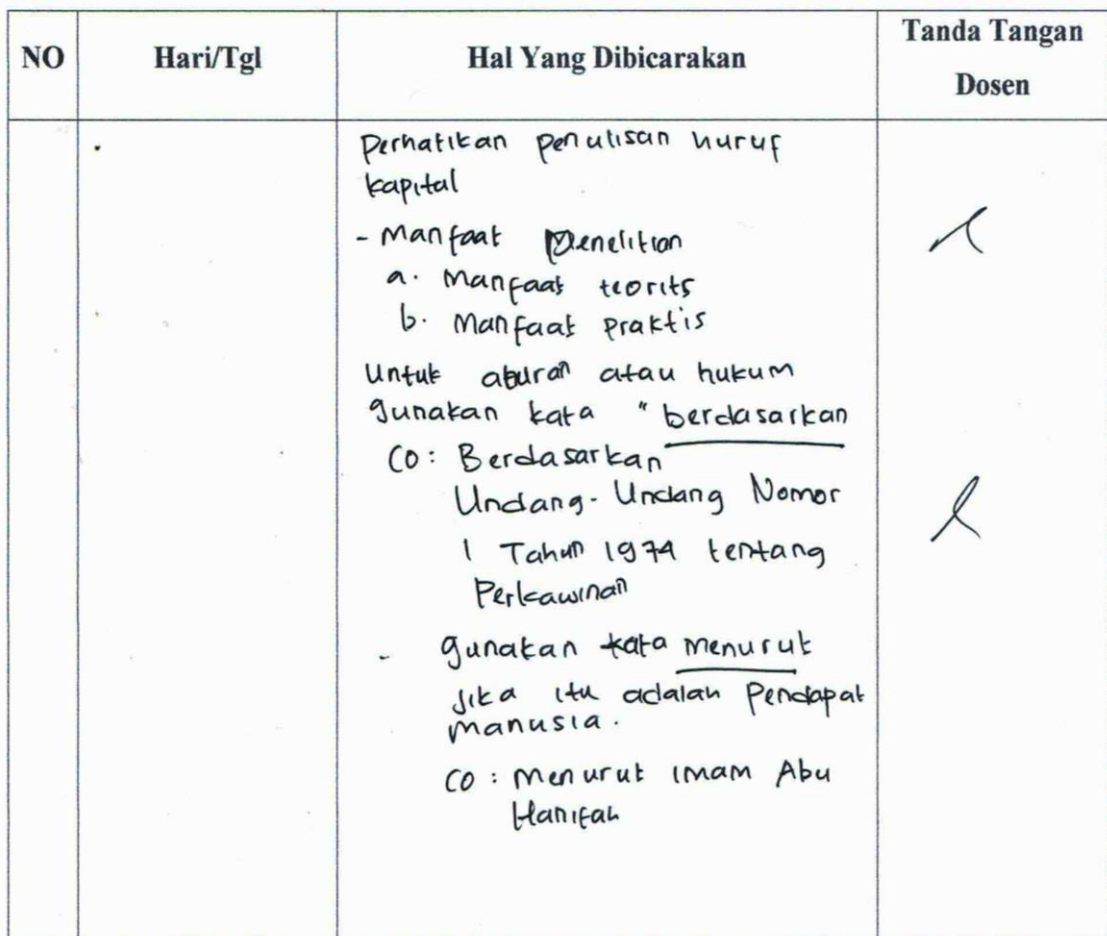 NO Hari/Tgl Hal Yang Dibicarakan Tanda Tangan Dosen
Perhatikan penulisan huruf
kapital
- Manfaat Penelitian
a. Manfaat teorits
b. Manfaat praktis
Untuk aturan atau hukum
gunakan kata " berdasarkan
Co: Berdasarkan
Undang-Undang Nomor
1 Tahun 1974 tentang
Perkawinan
- gunakan kata menurut
jika itu adalah Pendapat
manusia.
CO : Menurut Imam Abu
Hanifah